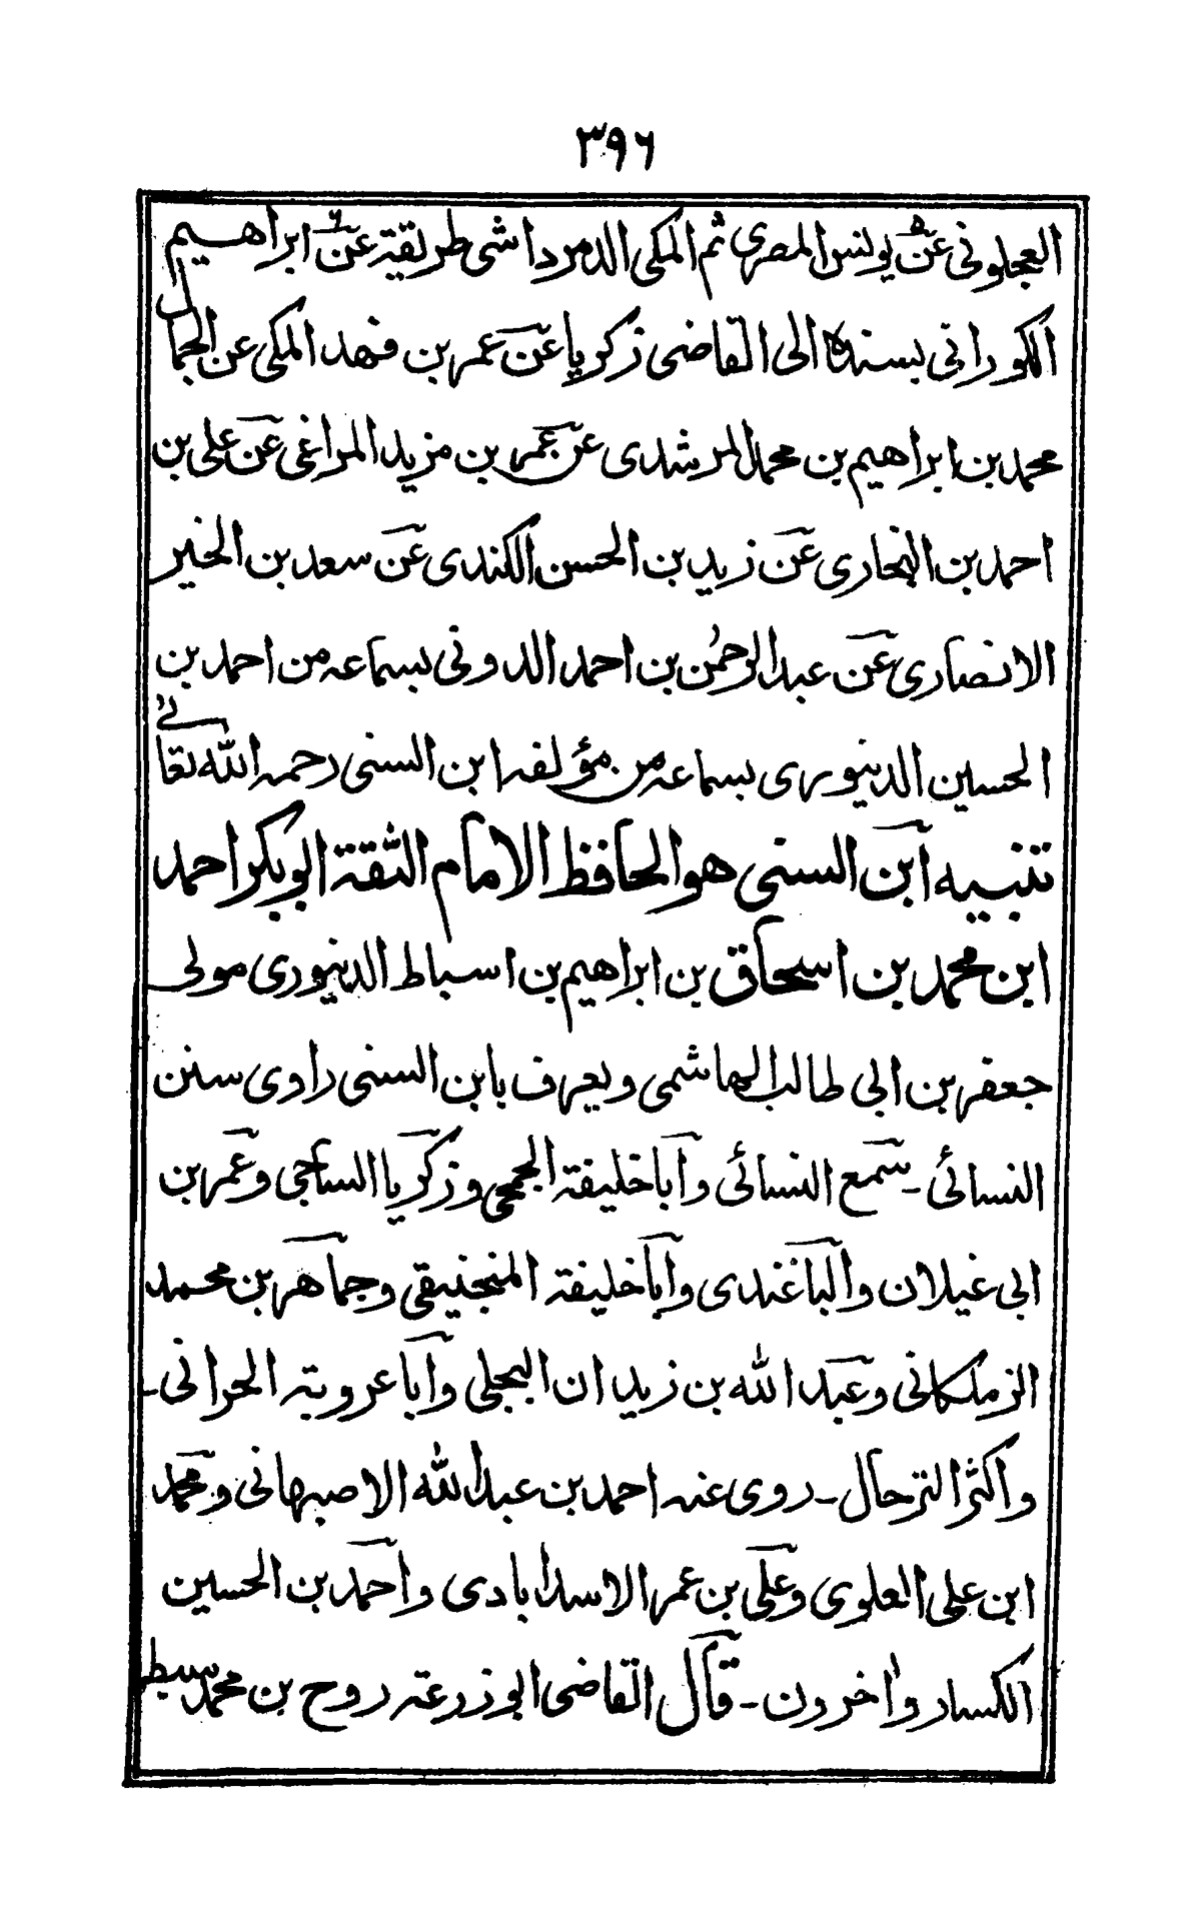 ٣٩٦
العجلونی عن یونس المصری ثم المکی الدمرداشی طریقۃ عن ابراھیم
الکورانی بسندہ الی القاضی زکریا عن عمر بن فھد المکی عن الجمال
محمد بن ابراھیم بن محمد المرشدی عن عمر بن مزید المراغی عن علی بن
احمد بن البخاری عن زید بن الحسن الکندی عن سعد بن الخیر
الانصاری عن عبد الرحمٰن بن احمد الدونی بسماعہ من احمد بن
الحسین الدینوری بسماعہ من مؤلفہ ابن السنی رحمہ اللہ تعالیٰ
تنبیہ ابن السنی ھو الحافظ الامام الثقۃ ابو بکر احمد
ابن محمد بن اسحاق بن ابراھیم بن اسباط الدینوری مولی
جعفر بن ابی طالب الھاشمی ویعرف بابن السنی راوی سنن
النسائی ۔ سمع النسائی وابا خلیفۃ الجمحی وزکریا الساجی وعمر بن
ابی غیلان والباغندی وابا خلیفۃ المنجنیقی وجماھر بن محمد
الزملکانی وعبد اللہ بن زیدان البجلی وابا عروبۃ الحرانی ۔
واکثر الترحال ۔ روی عنہ احمد بن عبد اللہ الاصبھانی ومحمد
ابن علی العلوی وعلی بن عمر الاسدابادی واحمد بن الحسین
الکسار واٰخرون ۔ قال القاضی ابو زرعۃ روح بن محمد سبط